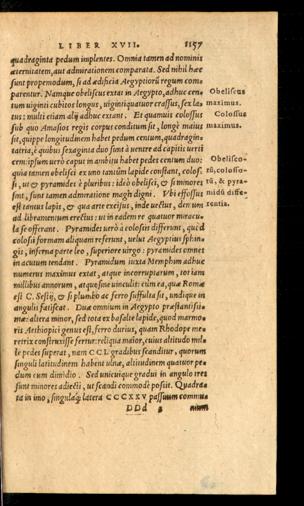 LIBER XVII. 1157
quadraginta pedum implentes. Omnia tamen ad nominis
æternitatem, aut admirationem comparata. Sed nihil hæc
sunt propemodum, si ad ædificia Ægyptiorū regum com-
parentur. Namque obeliscus extat in Ægypto, adhuc cen-
tum uiginti cubitos longus, uigintiquatuor crassus, sex la-
tus: multi etiam alij adhuc extant. Et quamuis colossus
sub quo Amasios regis corpus conditum sit, longè maius
sit, quippe longitudinem habet pedum centum, quadragin-
ta tria, è quibus sexaginta duo sunt à uentre ad capitis uerti
cem: ipsum uerò caput in ambitu habet pedes centum duo:
quia tamen obelisci ex uno tantùm lapide constant, coloss
si, ut & pyramides è pluribus: ideò obelisci, & si minores
sint, sunt tamen admiratione magis digni. Vbi effossus
est tantus lapis, & qua arte excisus, inde uectus, demum
ad libramentum erectus: ut in eadem re quatuor miracu-
la se offerant. Pyramides uerò à colossis differunt, quòd
colossi formam aliquam referunt, uelut Ægyptius sphin-
gis, inferna parte leo, superiore uirgo: pyramides omnes
in acutum tendant. Pyramidum iuxta Memphim adhuc
numerus maximus extat, atque incorruptarum, tot iam
millibus annorum, atque sine uinculis: cùm ea, quæ Romæ
est C. Sestij, & si plumbo ac ferro suffulta sit, undique in
angulis fatiscat. Duæ omnium in Ægypto præstantissi-
mæ: altera minor, sed tota ex basalte lapide, quod marmo-
ris Aethiopici genus est, ferro durius, quam Rhodope me-
retrix construxisse fertur: reliqua maior, cuius altitudo mil-
le pedes superat, nam CCL gradibus scanditur, quorum
singuli latitudinem habent ulnæ, altitudinem quatuor pe-
dum cum dimidio. Sed unicuique gradui in angulo tres
sunt minores adiecti, ut scandi commodè possit. Quadra-
ta in imo, singulaq; latera CCCXXV passuum commu-
DDd 2 nium
Obeliscus
maximus.
Colossus
maximus.
Obelisco-
rū, colosso-
rū, & pyra-
midū diffe-
rentia.